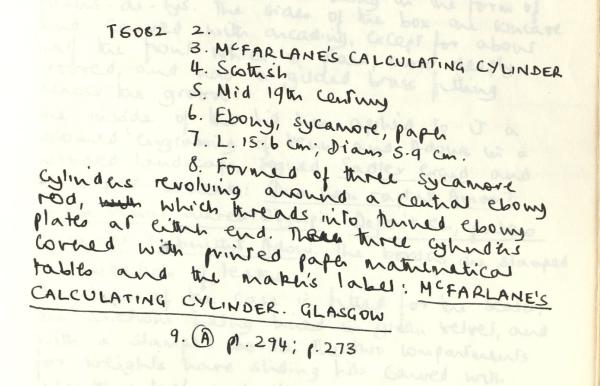 T6082 2.
3. MCFARLANE'S CALCULATING CYLINDER
4. Scottish
5. Mid 19th century
6. Ebony, sycamore, paper
7 L. 15.6 cm; Diam 5.9 cm.
8. Formed of three sycamore
cylinders revolving around a central ebony
rod, which threads into turned ebony
plates at either end. The three cylinders
covered with printed paper mathematical
tables and the maker's label: MCFARLANE'S
CALCULATING CYLINDER. GLASGOW
9. (A) pl. 294; p. 273